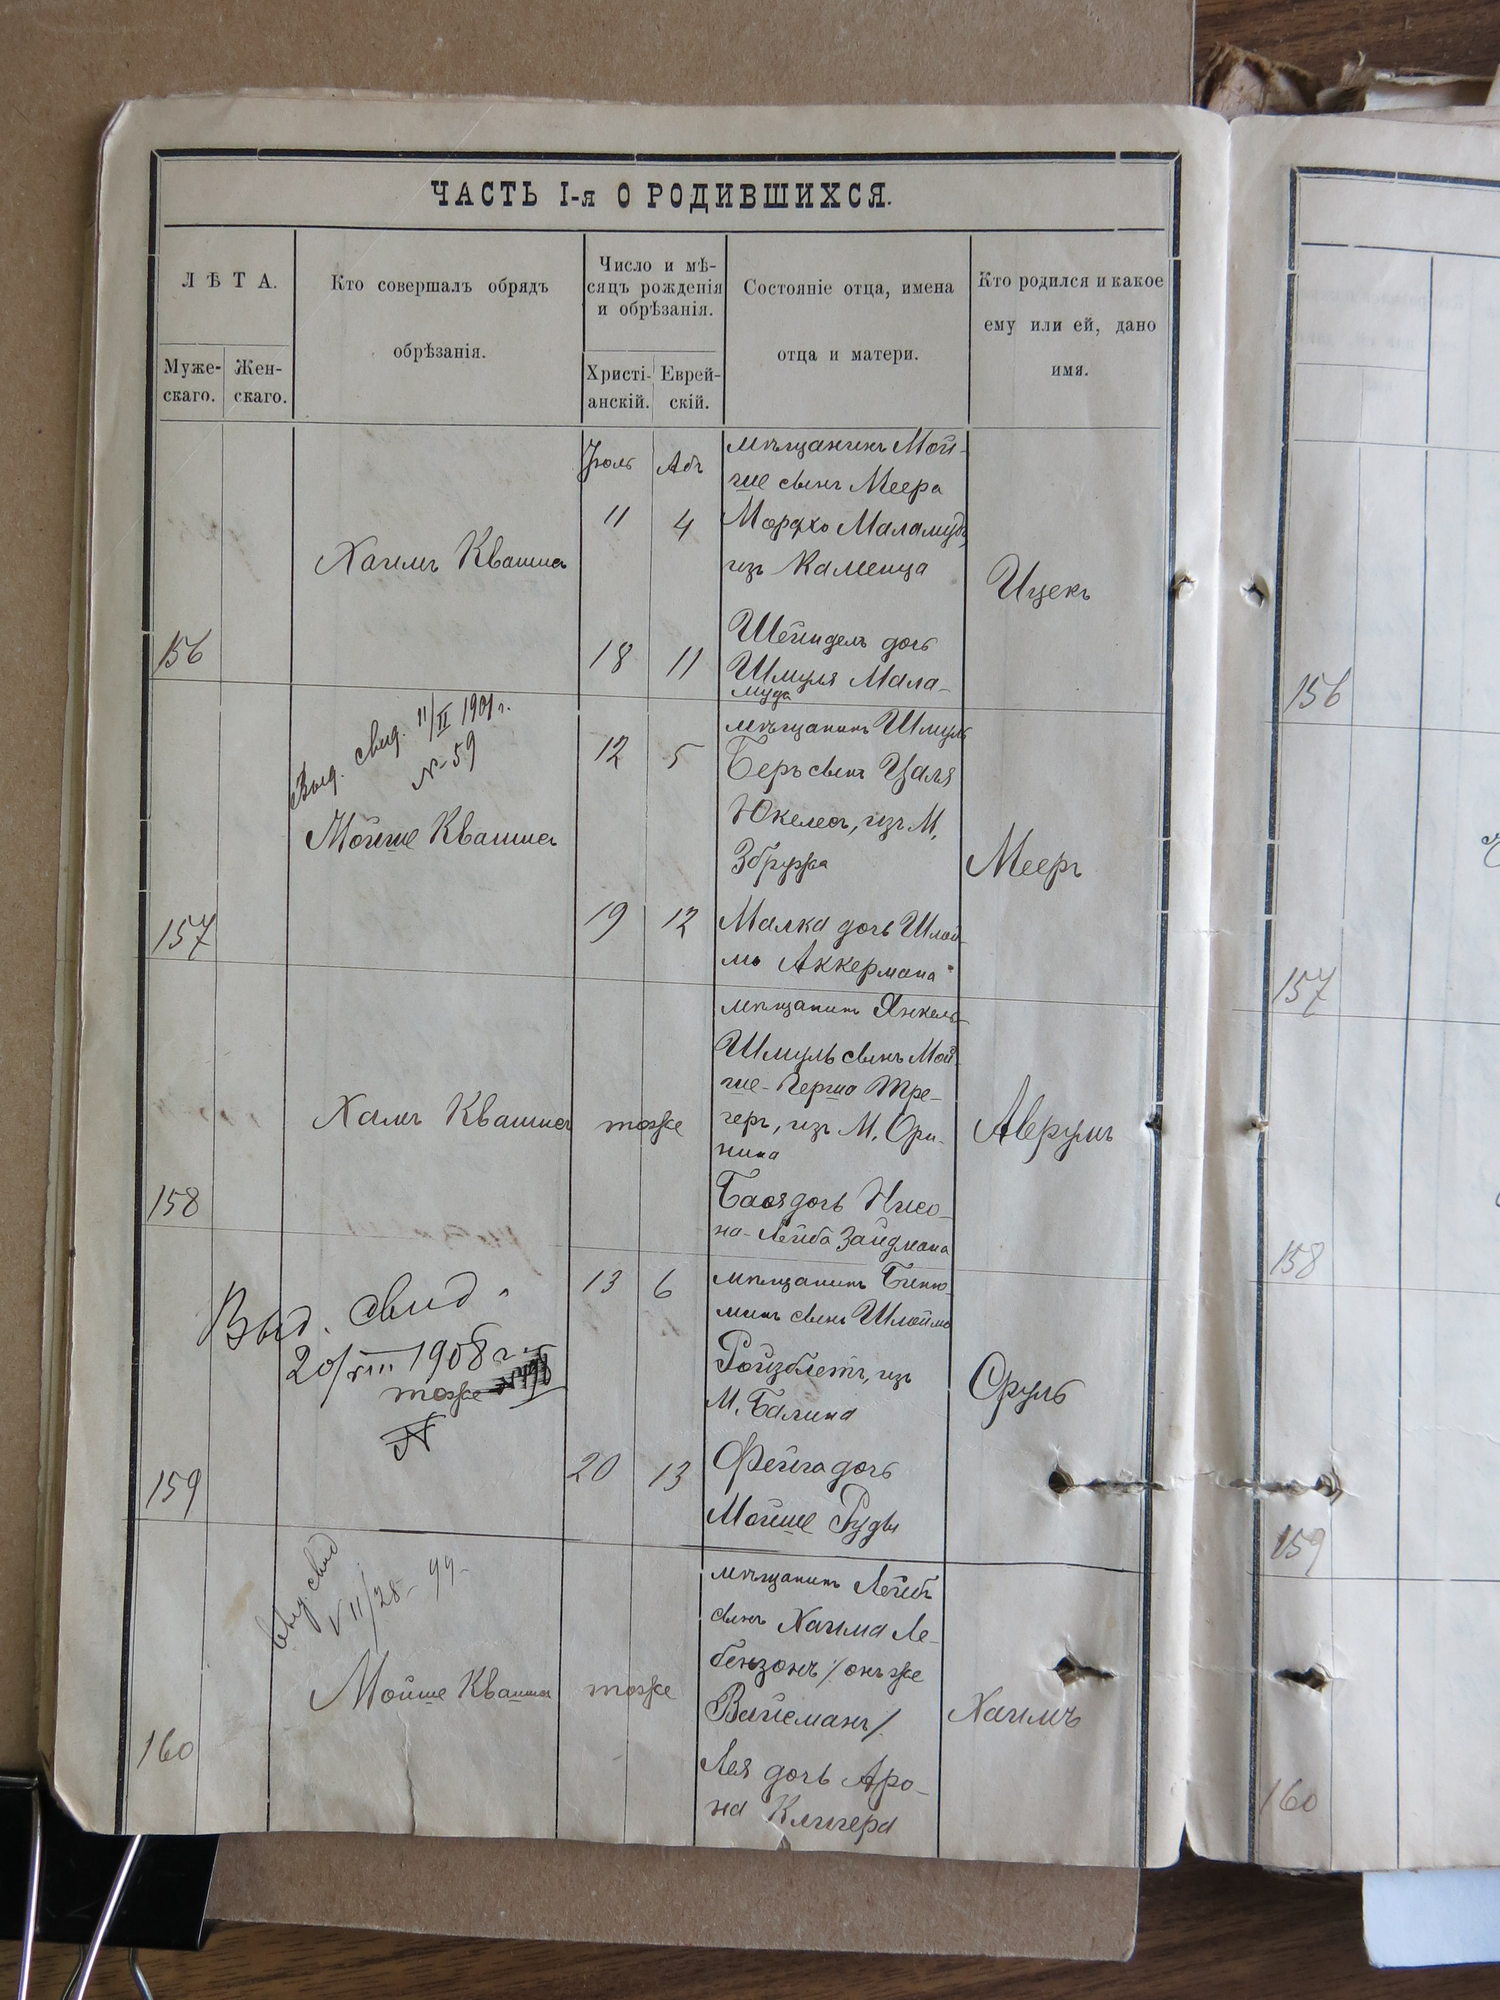 ЧАСТЬ I-я О РОДИВШИХСЯ.
ЛѢТА.
Муже-
скаго.
Жен-
скаго.
Кто совершалъ обрядъ
обрѣзанія.
Число и мѣ-
сяцъ рожденія
и обрѣзанія.
Христі-
анскій.
Еврей-
скій.
Состояніе отца, имена
отца и матери.
Кто родился и какое
ему или ей, дано
имя.
156
Хаимъ Квашна
Іюль
11
18
Абъ
4
11
мѣщанинъ Мой-
ше сынъ Меера
Мордхо Маламудъ,
изъ Каменца
Шейндель дочь
Шмуля Мала-
муда
Ицекъ
157
Выд. свид. 11/II 1901 г.
№ 59
Мойше Квашна
12
19
5
12
мѣщанинъ Шмуль
Беръ сынъ Цаля
Юкелесъ, изъ М.
Збрижа
Малка дочь Шлой-
мы Аккермана
Мееръ
158
Хаимъ Квашна
тоже
мѣщанинъ Янкель-
Шмуль сынъ Мой-
ше-Герша Тре-
геръ, изъ М. Ори-
нина
Бася дочь Нисо-
на-Лейба Зайдмана
Аврумъ
159
Выд. свид.
20/VIII 1908 г.
тоже
№
13
20
6
13
мѣщанинъ Биню-
минъ сынъ Шлоймы
Ройзблетъ, изъ
М. Балина
Фейга дочь
Мойше Руды
Сруль
160
Выд свид
VII/28-99-
Мойше Квашна
тоже
мѣщанинъ Лейбъ
сынъ Хаима Ле-
бензонъ /онъ же
Вайсманъ/.
Лея дочь Аро-
на Клигера
Хаимъ
156
157
158
159
160